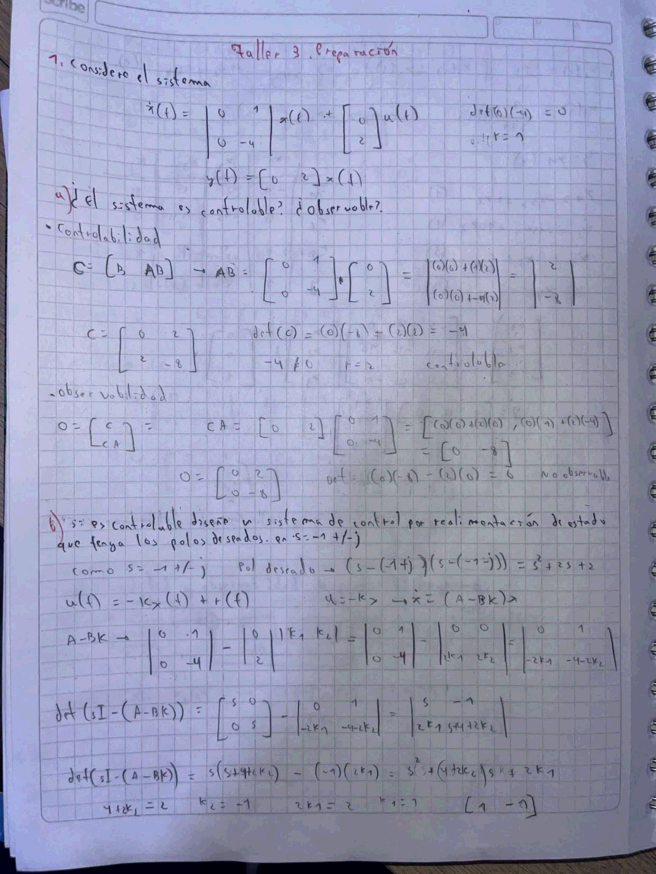 scribe
Taller 3. Preparación
1. Considere el sistema
ẋ(t) = | 0 1 ; 0 -4 | x(t) + [ 0 ; 2 ] u(t)    det (0)(-4) = 0
rk = 1
y(t) = [0 2] x(t)
a) ¿El sistema es controlable? ¿observable?.
• Controlabilidad
C = [B, AB] → AB = [ 0 1 ; 0 -4 ] • [ 0 ; 2 ] = | (0)(0) + (1)(2) ; (0)(0) + -4(2) | = | 2 ; -8 |
C = [ 0 2 ; 2 -8 ]    det(C) = (0)(-8) - (2)(2) = -4
-4 ≠ 0    r = 2    controlable
• observabilidad
O = [ C ; CA ] =    CA = [0 2] [ 0 1 ; 0 -4 ] = [(0)(0)+(2)(0), (0)(1)+(2)(-4)]
= [0 -8]
O = [ 0 2 ; 0 -8 ]    Det = (0)(-8) - (2)(0) = 0    No observable
b) si es controlable diseñe un sistema de control por realimentación de estado
que tenga los polos deseados. en s = -1 +/- j
como s = -1 +/- j    Pol deseado → (s - (-1+j))(s - (-1-j)) = s² + 2s + 2
u(t) = -Kx(t) + r(t)    u = -Kx → ẋ = (A-BK)x
A-BK → | 0 1 ; 0 -4 | - | 0 ; 2 | |k1 k2| = | 0 1 ; 0 -4 | - | 0 0 ; 2k1 2k2 | = | 0 1 ; -2k1 -4-2k2 |
det(sI-(A-BK)) = [ s 0 ; 0 s ] - | 0 1 ; -2k1 -4-2k2 | = | s -1 ; 2k1 s+4+2k2 |
det(sI-(A-BK)) = s(s+4+2k2) - (-1)(2k1) = s² + (4+2k2)s + 2k1
4+2k2 = 2    k2 = -1    2k1 = 2    k1 = 1    [1 -1]